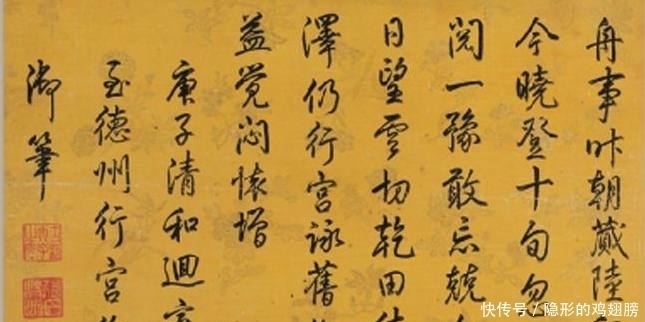 舟事昨朝蕆陸
今曉登十旬勿
閱一豫敢忘兢
日望雲切乾田
澤仍行宮詠舊
益覺悶懷增
庚子清和迴
至德州行宮
御筆
快传号/隐形的鸡翅膀